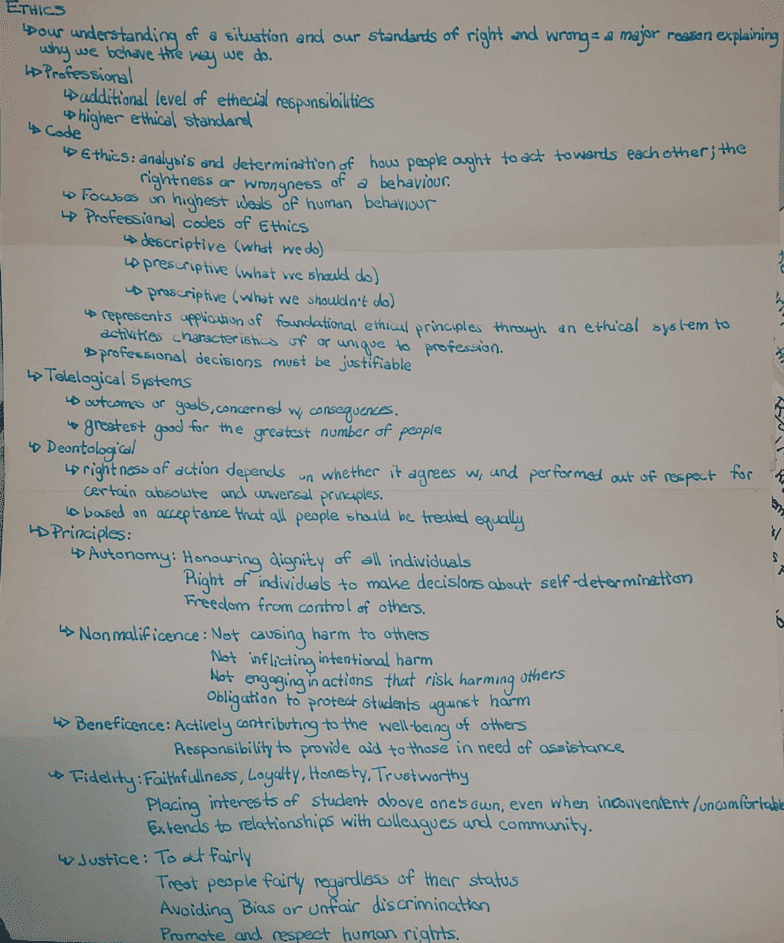 ETHICS
↳ our understanding of a situation and our standards of right and wrong = a major reason explaining
why we behave the way we do.
↳ Professional
↳ additional level of ethecial responsibilities
↳ higher ethical standard
↳ Code
↳ Ethics: analysis and determination of how people ought to act towards each other; the
rightness or wrongness of a behaviour.
↳ Focuses on highest ideals of human behaviour
↳ Professional codes of Ethics
↳ descriptive (what we do)
↳ prescriptive (what we should do)
↳ proscriptive (what we shouldn't do)
↳ represents application of foundational ethical principles through an ethical system to
activities characteristics of or unique to profession.
↳ professional decisions must be justifiable
↳ Telelogical Systems
↳ outcomes or goals, concerned w/ consequences.
↳ greatest good for the greatest number of people
↳ Deontological
↳ rightness of action depends on whether it agrees w/ and performed out of respect for
certain absolute and universal principles.
↳ based on acceptance that all people should be treated equally
↳ Principles:
↳ Autonomy: Honouring dignity of all individuals
Right of individuals to make decisions about self-determination
Freedom from control of others.
↳ Nonmalificence: Not causing harm to others
Not inflicting intentional harm
Not engaging in actions that risk harming others
Obligation to protect students against harm
↳ Beneficence: Actively contributing to the well-being of others
Responsibility to provide aid to those in need of assistance
↳ Fidelity: Faithfullness, Loyalty, Honesty, Trustworthy
Placing interests of student above one's own, even when inconvenient/uncomfortable
Extends to relationships with colleagues and community.
↳ Justice: To act fairly
Treat people fairly regardless of their status
Avoiding Bias or unfair discrimination
Promote and respect human rights.